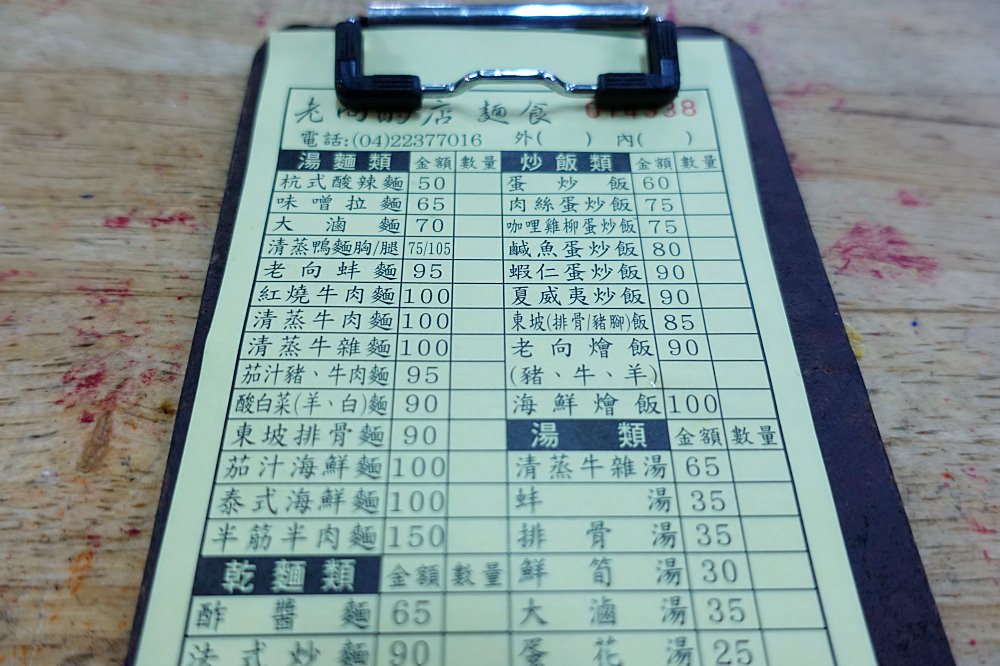 老向的店麵食
電話:(04)22377016 外( ) 內( )
湯麵類 金額 數量
杭式酸辣麵 50
味噌拉麵 65
大滷麵 70
清蒸鴨麵胸/腿 75/105
老向蚌麵 95
紅燒牛肉麵 100
清蒸牛肉麵 100
清蒸牛雜麵 100
茄汁豬、牛肉麵 95
酸白菜(羊、白)麵 90
東坡排骨麵 90
茄汁海鮮麵 100
泰式海鮮麵 100
半筋半肉麵 150
乾麵類 金額 數量
酢醬麵 65
法式炒麵 90
炒飯類 金額 數量
蛋炒飯 60
肉絲蛋炒飯 75
咖哩雞柳蛋炒飯 75
鹹魚蛋炒飯 80
蝦仁蛋炒飯 90
夏威夷炒飯 90
東坡(排骨/豬腳)飯 85
老向燴飯 90
(豬、牛、羊)
海鮮燴飯 100
湯類 金額 數量
清蒸牛雜湯 65
蚌湯 35
排骨湯 35
鮮筍湯 30
大滷湯 35
蛋花湯 25